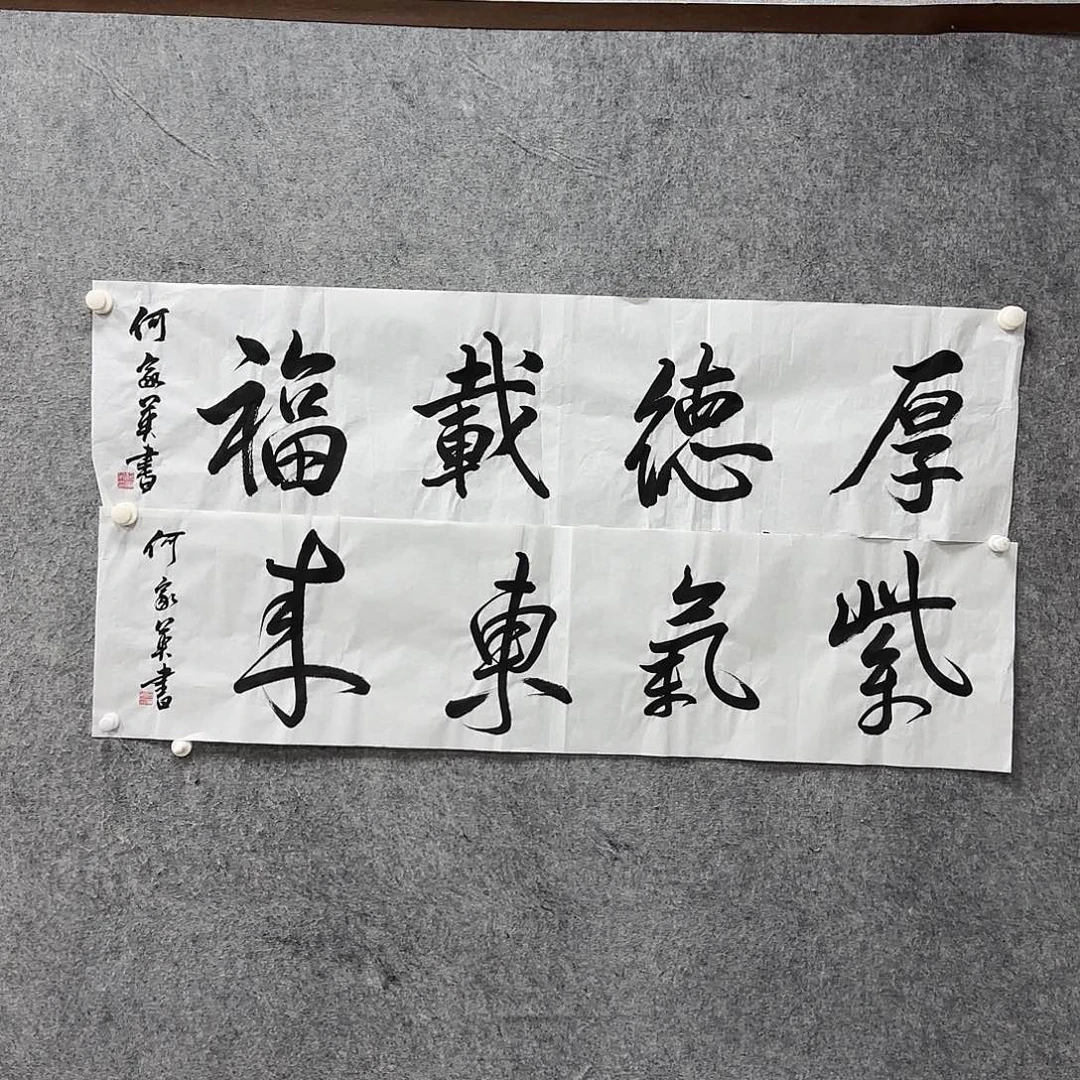 厚德載福
何家英書
紫氣東来
何家英書